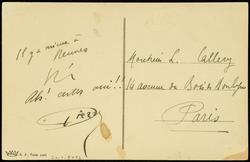 Il y a mieux à
Rennes
Ah! certes oui!!
Monsieur L. Callery
14 avenue du Bois de Boulogne
Paris